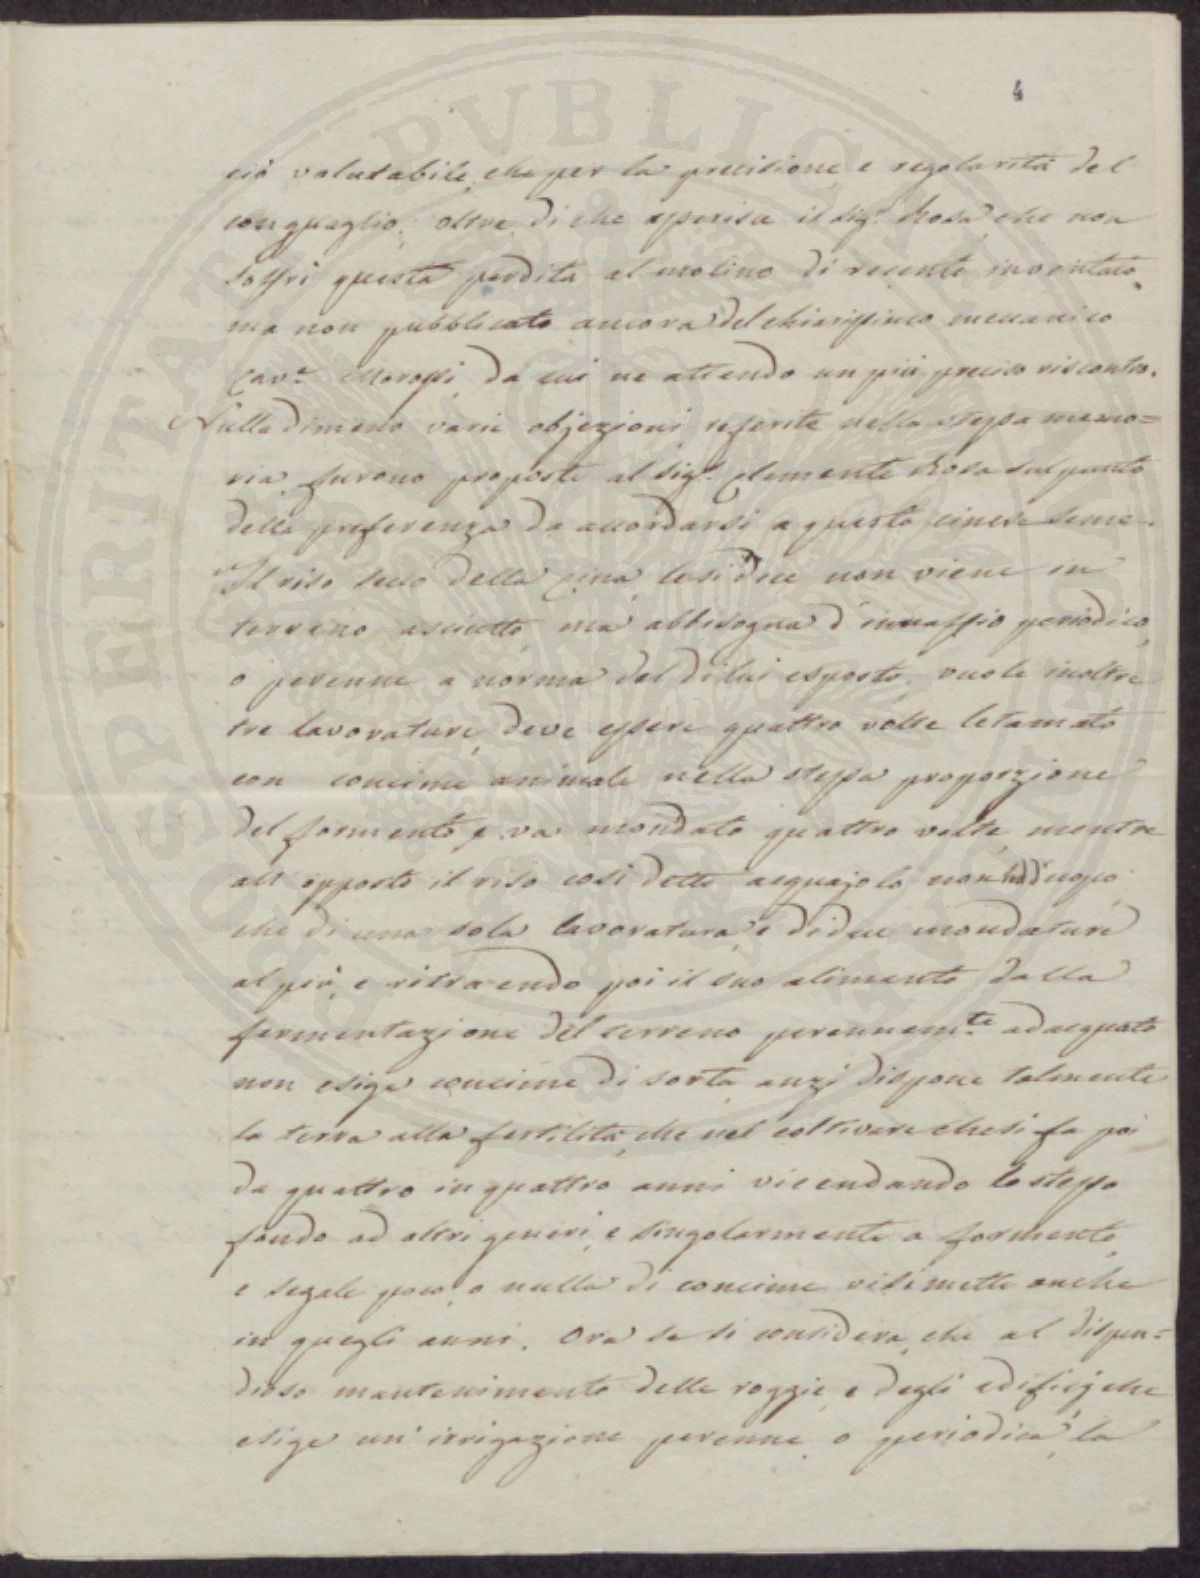 4
ciò valutabile, che per la precisione e regolarità del
conguaglio; oltre di che asserisce il sig.r Rosa, che non
soffri questa perdita al molino di recente inventato,
ma non pubblicato ancora del chiarissimo meccanico
Cav.e Morosi, da cui ne attendo un più preciso riscontro.
Nulladimeno varie objezioni, riferite nella stessa memo=
ria, furono proposte al sig.r Clemente Rosa sul punto
della preferenza da accordarsi a questo cinese seme.
Il riso secco della Cina, losi dice non viene in
terreno asciutto, ma abbisogna d'innaffio periodico,
o perenne a norma del di lui esposto, vuole inoltre
tre lavorature, deve essere quattro volte letamato
con concime animale nella stessa proporzione
del formento, e va mondato quattro volte, mentre
all'opposto il riso così detto acquajolo non ha d'uopo,
che di una sola lavoratura, e di due mondature
al più, e ritraendo poi il suo alimento dalla
fermentazione del terreno perennem.te adacquato
non esige concime di sorta, anzi dispone talmente
la terra alla fertilità, che nel coltivare che si fa poi
da quattro in quattro anni vicendando lo stesso
fondo ad altri generi, e singolarmente a formento,
e segale poco, o nulla di concime visi mette anche
in quegli anni. Ora se si considera, che al dispen=
dioso mantenimento delle roggie, e degli edificj che
esige un'irrigazione perenne, o periodica, la
PVBLICAE PROSPERITATI